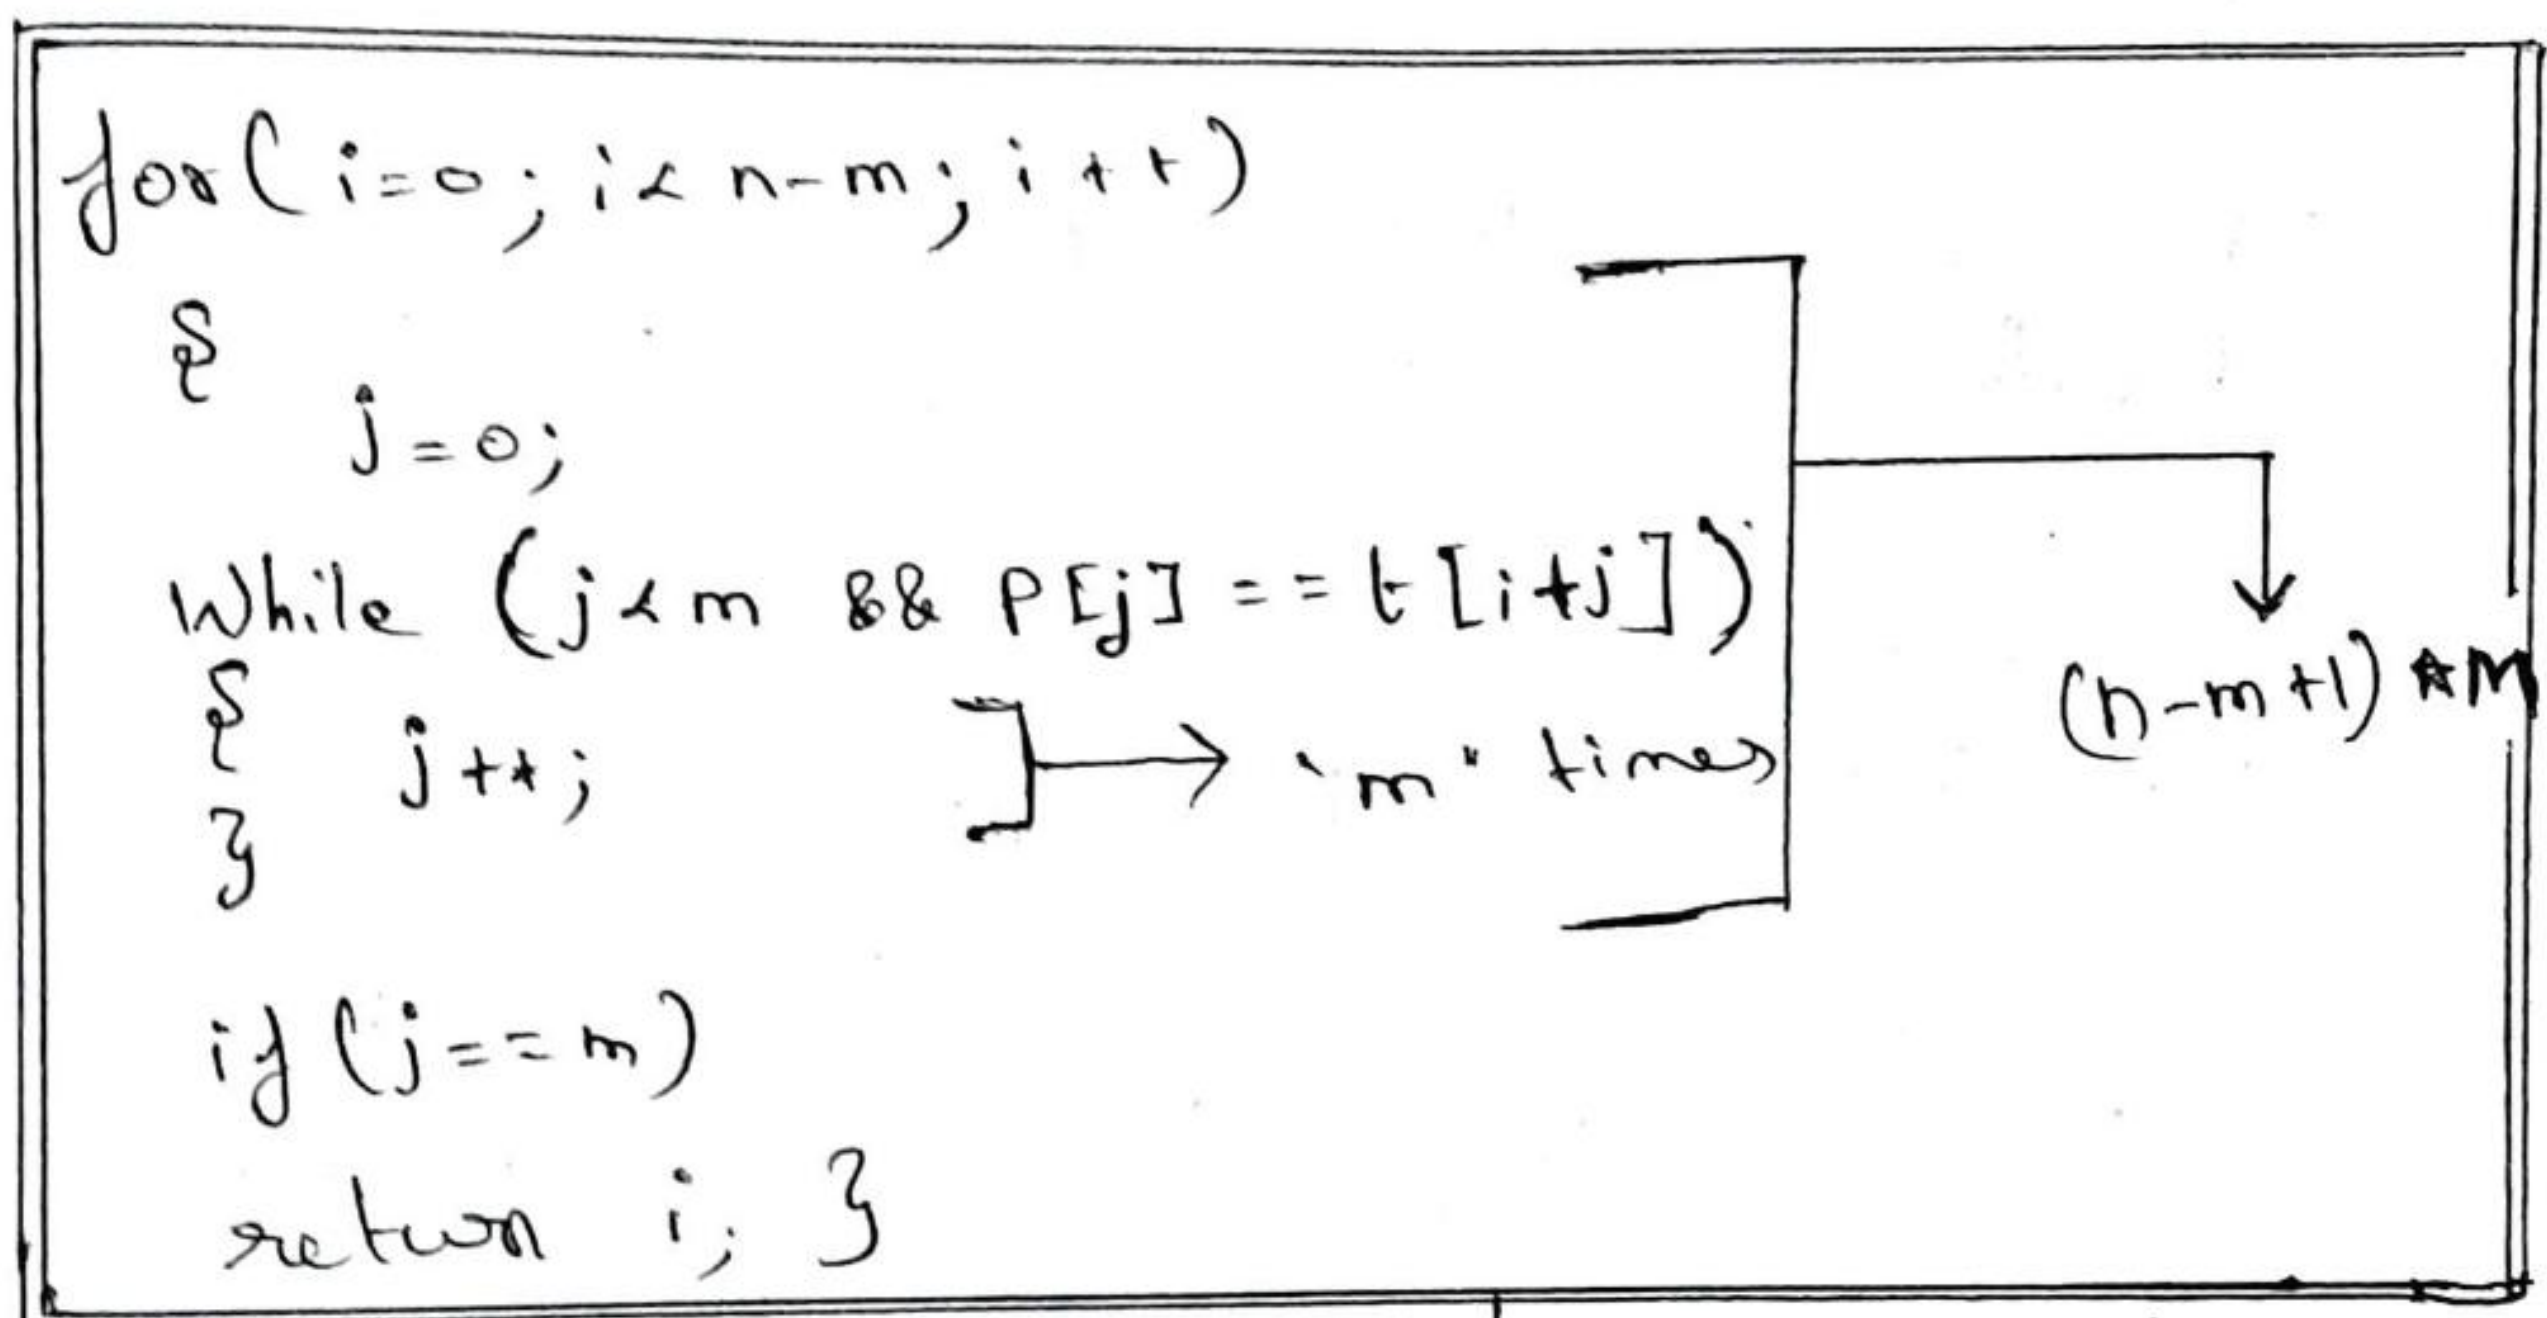 for( i=0; i< n-m; i++)
{
j=0;
While (j<m && P[j] == t[i+j])
{
j++;
"m" times
(n-m+1) *M
}
if (j==m)
return i; }